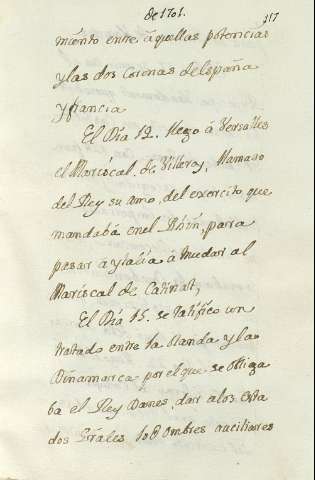 de 1701. 317
miento entre aquellas potencias
y las dos Coronas de España
y francia
El Dia 12. llego á Versalles
el Mariscal de Villeroy, llamado
del Rey su amo, del exercito que
mandabá en el Rhin, parra
pasar á ytalia á mudar al
Mariscal de Catinat,
El Dia 15. se ratifico un
tratado entre la olanda y la
Dinamarca por el que se obliga
ba el Rey Danes, dar a los esta
dos Grāles 10 8 ombres auciliares